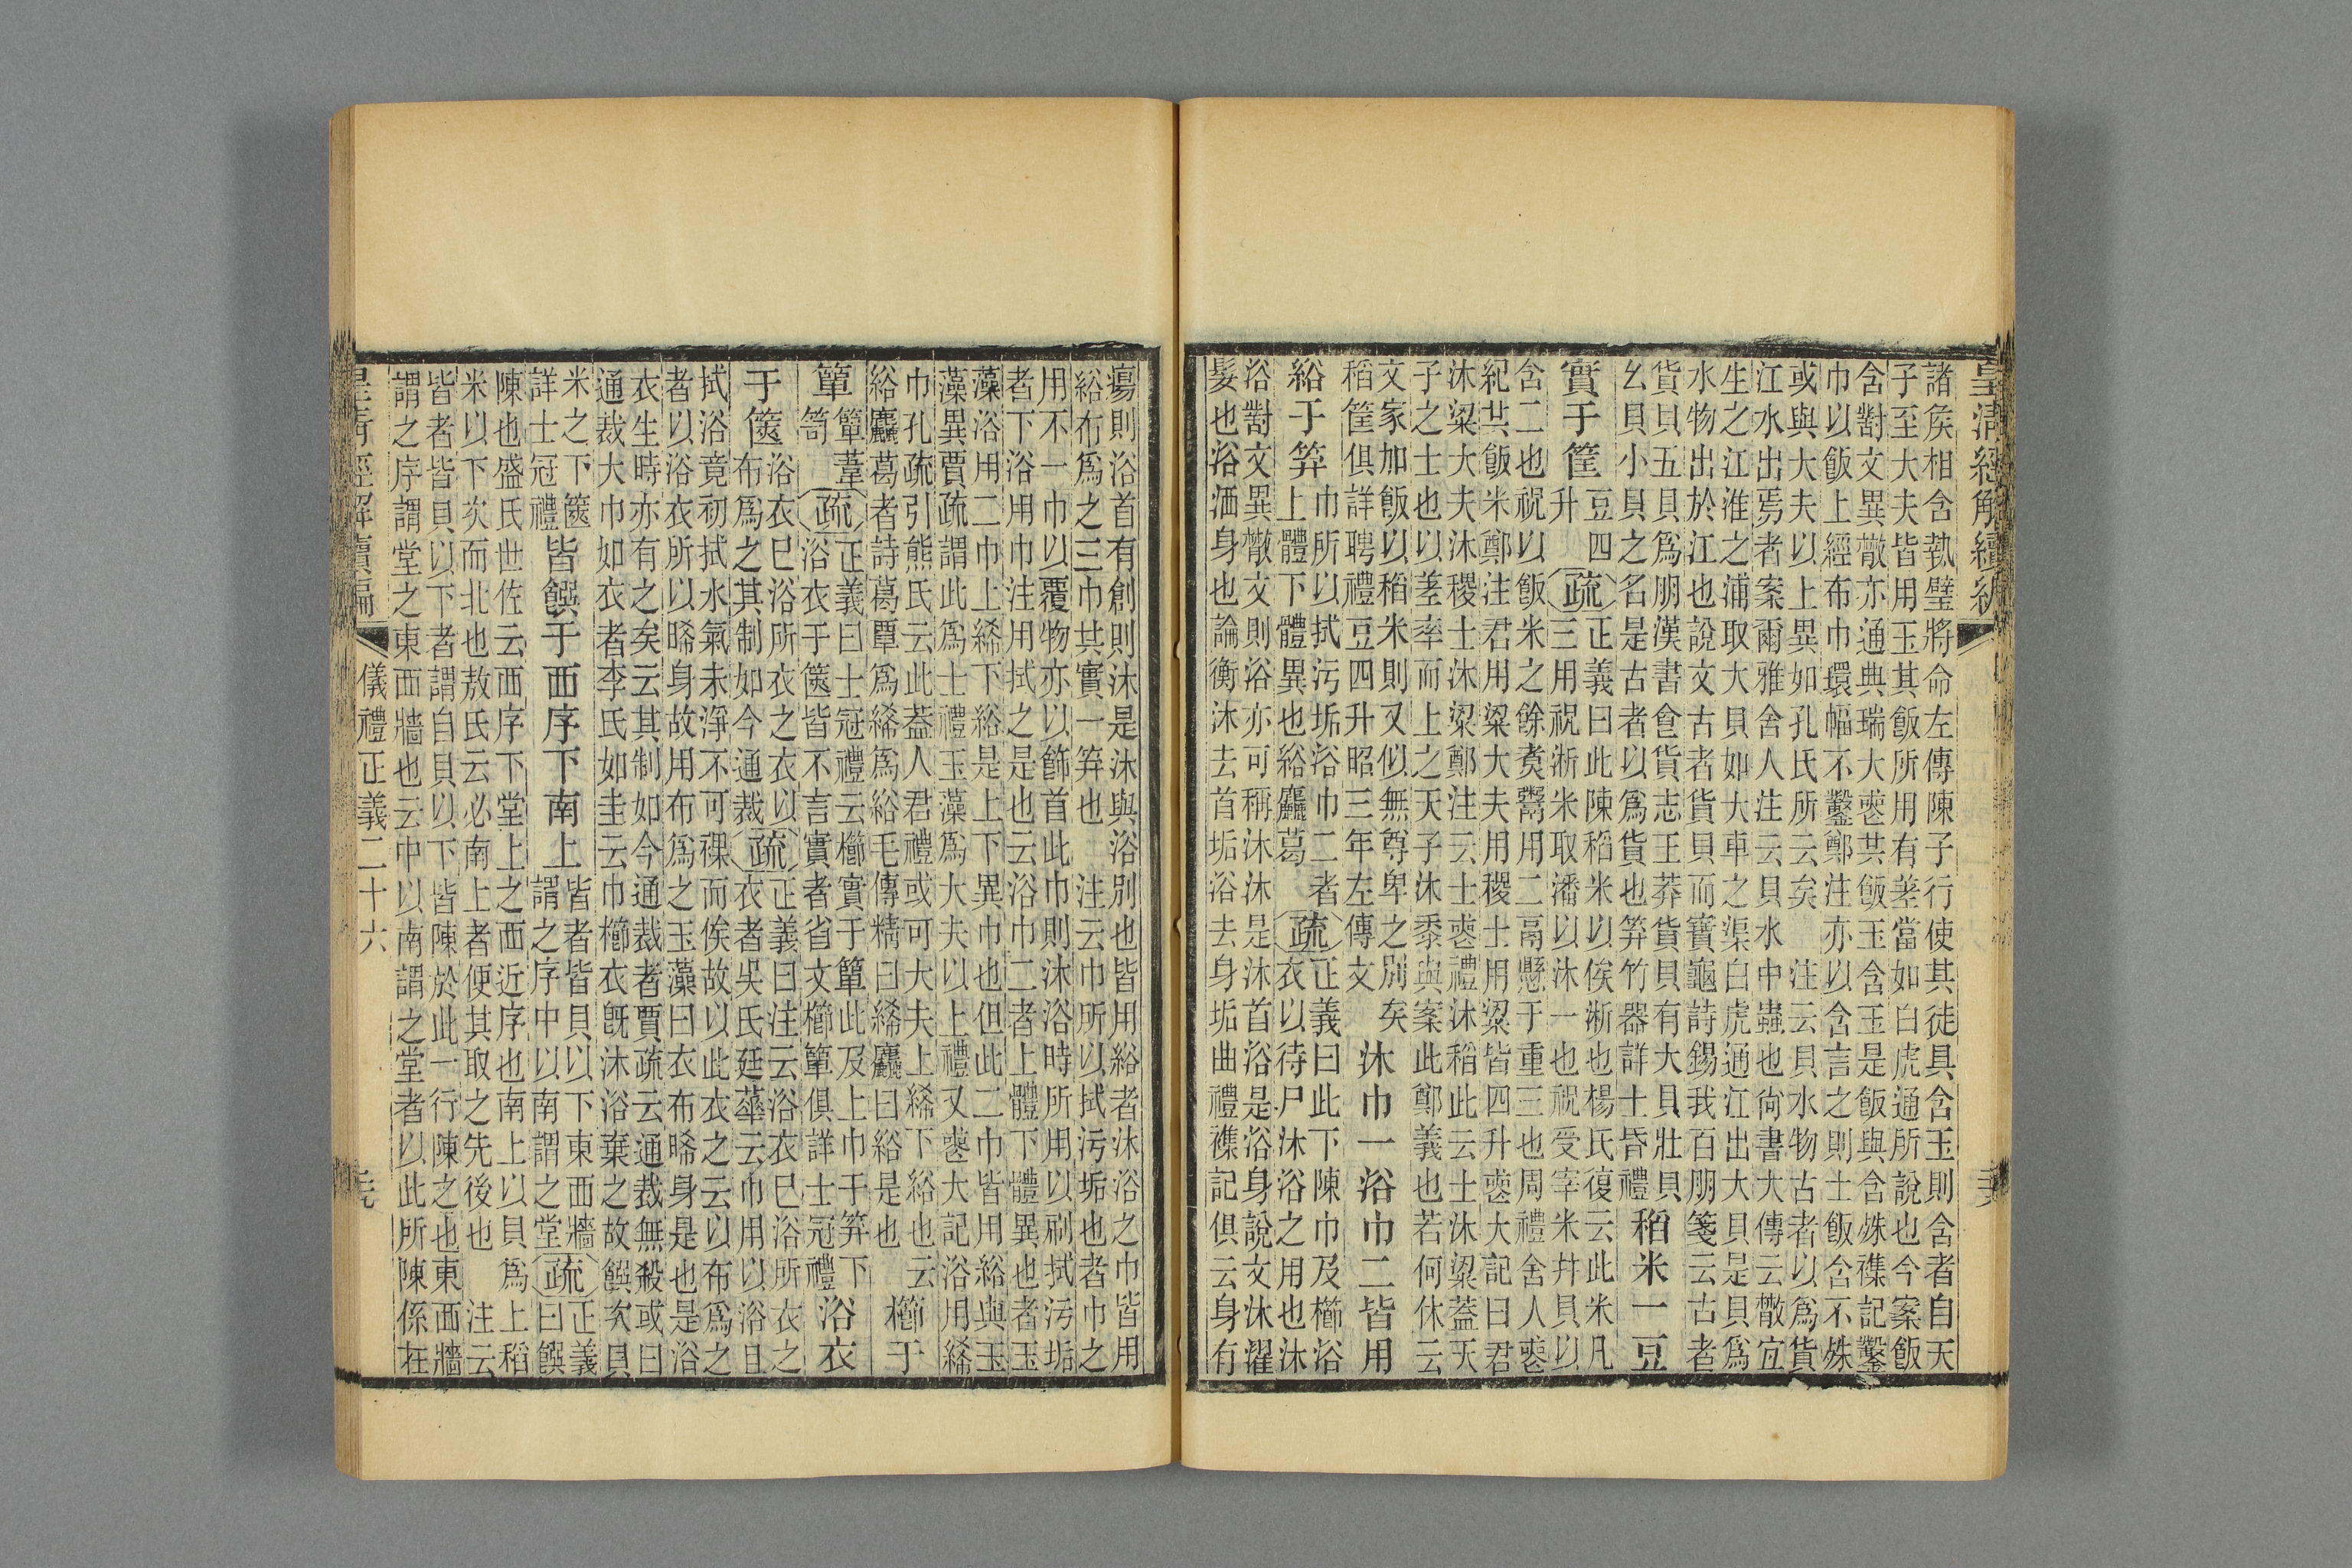 皇清經解續編
諸矦相含執璧將命左傳陳子行使其徒具含玉則含者自天
子至大夫皆用玉其飯所用有差當如白虎通所說也今案飯
含對文異散亦通典瑞大喪共飯玉含玉是飯與含殊襍記鑿
巾以飯上經布巾環幅不鑿鄭注亦以含言之則士飯含不殊
或與大夫以上異如孔氏所云矣 注云貝水物古者以爲貨
江水出焉者案爾雅舍人注云貝水中蟲也尙書大傳云散宜
生之江淮之浦取大貝如大車之渠白虎通江出大貝是貝爲
水物出於江也說文古者貨貝而寶龜詩錫我百朋箋云古者
貨貝五貝爲朋漢書食貨志王莽貨貝有大貝壯貝
幺貝小貝之名是古者以爲貨也笲竹器詳士昏禮
稻米一豆
實于筐
豆四
升
疏
正義曰此陳稻米以俟淅也楊氏復云此米凡
三用祝淅米取潘以沐一也祝受宰米幷貝以
含二也祝以飯米之餘煑鬻用二鬲懸于重三也周禮舍人喪
紀共飯米鄭注君用粱大夫用稷士用粱皆四升喪大記曰君
沐粱大夫沐稷士沐粱鄭注云士喪禮沐稻此云士沐粱蓋天
子之士也以差率而上之天子沐黍與案此鄭義也若何休云
文家加飯以稻米則又似無尊卑之別矣
稻筐俱詳聘禮豆四升昭三年左傳文
沐巾一浴巾二皆用
綌于笲
巾所以拭污垢浴巾二者
上體下體異也綌麤葛
疏
正義曰此下陳巾及櫛浴
衣以待尸沐浴之用也沐
浴對文異散文則浴亦可稱沐沐是沐首浴是浴身說文沐濯
髮也浴洒身也論衡沐去首垢浴去身垢曲禮襍記俱云身有
瘍則浴首有創則沐是沐與浴別也皆用綌者沐浴之巾皆用
綌布爲之三巾共實一笲也 注云巾所以拭污垢也者巾之
用不一巾以覆物亦以飾首此巾則沐浴時所用以刷拭污垢
者下浴用巾注用拭之是也云浴巾二者上體下體異也者玉
藻浴用二巾上絺下綌是上下異巾也但此二巾皆用綌與玉
藻異賈疏謂此爲士禮玉藻爲大夫以上禮又喪大記浴用絺
巾孔疏引熊氏云此蓋人君禮或可大夫上絺下綌也云
綌麤葛者詩葛覃爲絺爲綌毛傳精曰絺麤曰綌是也
櫛于
簞
簞葦
笥
疏
正義曰士冠禮云櫛實于簞此及上巾于笲下
浴衣于篋皆不言實者省文櫛簞俱詳士冠禮
浴衣
于篋
浴衣已浴所衣之衣以
布爲之其制如今通裁
疏
正義曰注云浴衣已浴所衣之
衣者吳氏廷蕐云巾用以浴且
拭浴竟初拭水氣未淨不可裸而俟故以此衣之云以布爲之
者以浴衣所以晞身故用布爲之玉藻曰衣布晞身是也是浴
衣生時亦有之矣云其制如今通裁者賈疏云通裁無殺或曰
通裁大巾如衣者李氏如圭云巾櫛衣旣沐浴棄之故饌次貝
米之下篋
詳士冠禮
皆饌于西序下南上
皆者皆貝以下東西牆
謂之序中以南謂之堂
疏
正義
曰饌
陳也盛氏世佐云西序下堂上之西近序也南上以貝爲上稻
米以下次而北也敖氏云必南上者便其取之先後也 注云
皆者皆貝以下者謂自貝以下皆陳於此一行陳之也東西牆
謂之序謂堂之東西牆也云中以南謂之堂者以此所陳係在
皇清經解續編
儀禮正義二十六